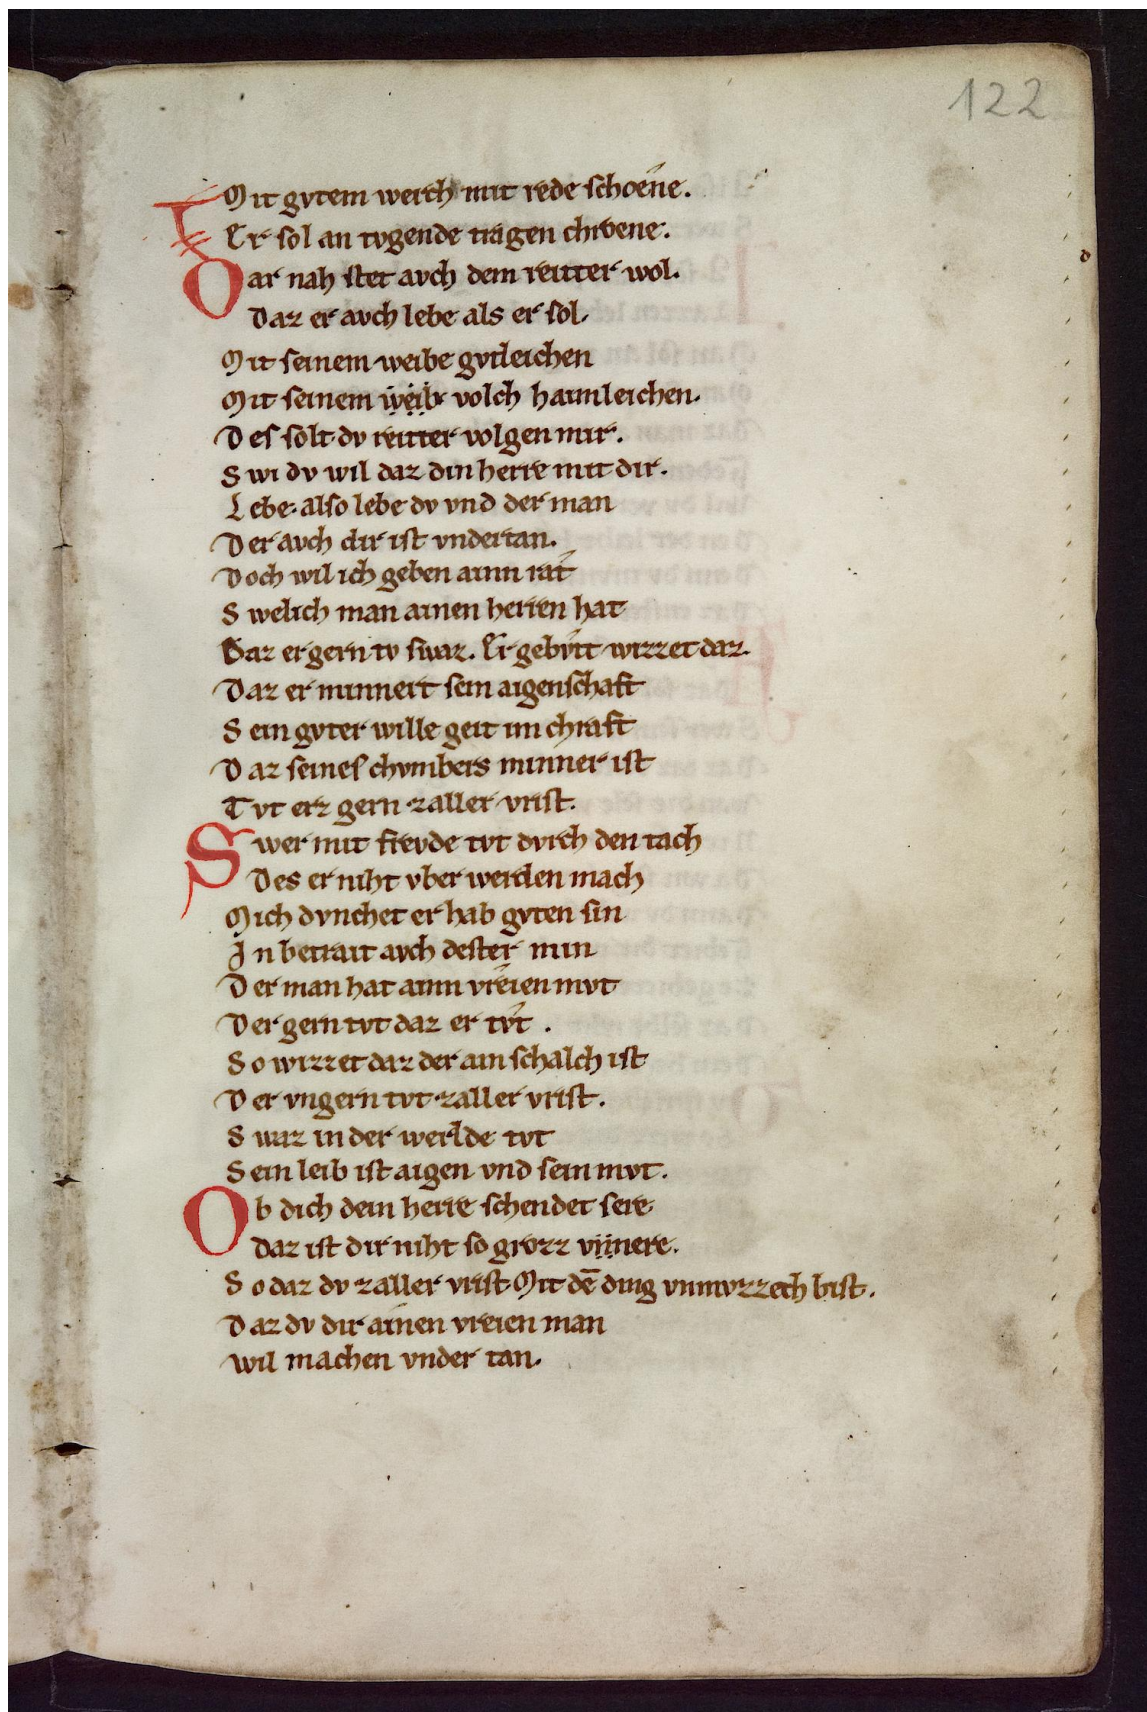 122
Mit gvtem werch mit rede schoene.
Er sol an tvgende tragen chroene.
Dar nah stet avch dem reitter wol.
Daz er avch lebe als er sol.
Mit seinem weibe gvtleichen
Mit seinem weib volch haimleichen.
Des solt dv reitter volgen mir.
Swi dv wil daz din herre mit dir.
Lebe. also lebe dv vnd der man
Der avch dir ist vndertan.
Doch wil ich geben ainn rat
Swelich man ainen herren hat
Daz er gern tv swaz. Er gebivtt wizzet daz.
Daz er minnert sein aigenschaft
Sein gvter wille geit im chraft
Daz seines chvmbers minner ist
Tvt erz gern zaller vrist.
Swer mit frevde tvt dvrch den tach
Des er niht vber werden mach
Mich dvnchet er hab gvten sin
In betrait avch dester min
Der man hat ainn vreien mvt
Der gern tvt daz er tvt .
So wizzet daz der ain schalch ist
Der vngern tvt zaller vrist.
Swaz in der werlde tvt
Sein leib ist aigen vnd sein mvt.
Ob dich dein herre schendet sere
daz ist dir niht so grozz vnere.
So daz dv zaller vrist Mit dē ding vnmvzzech bist.
Daz dv dir ainen vreien man
wil machen vnder tan.